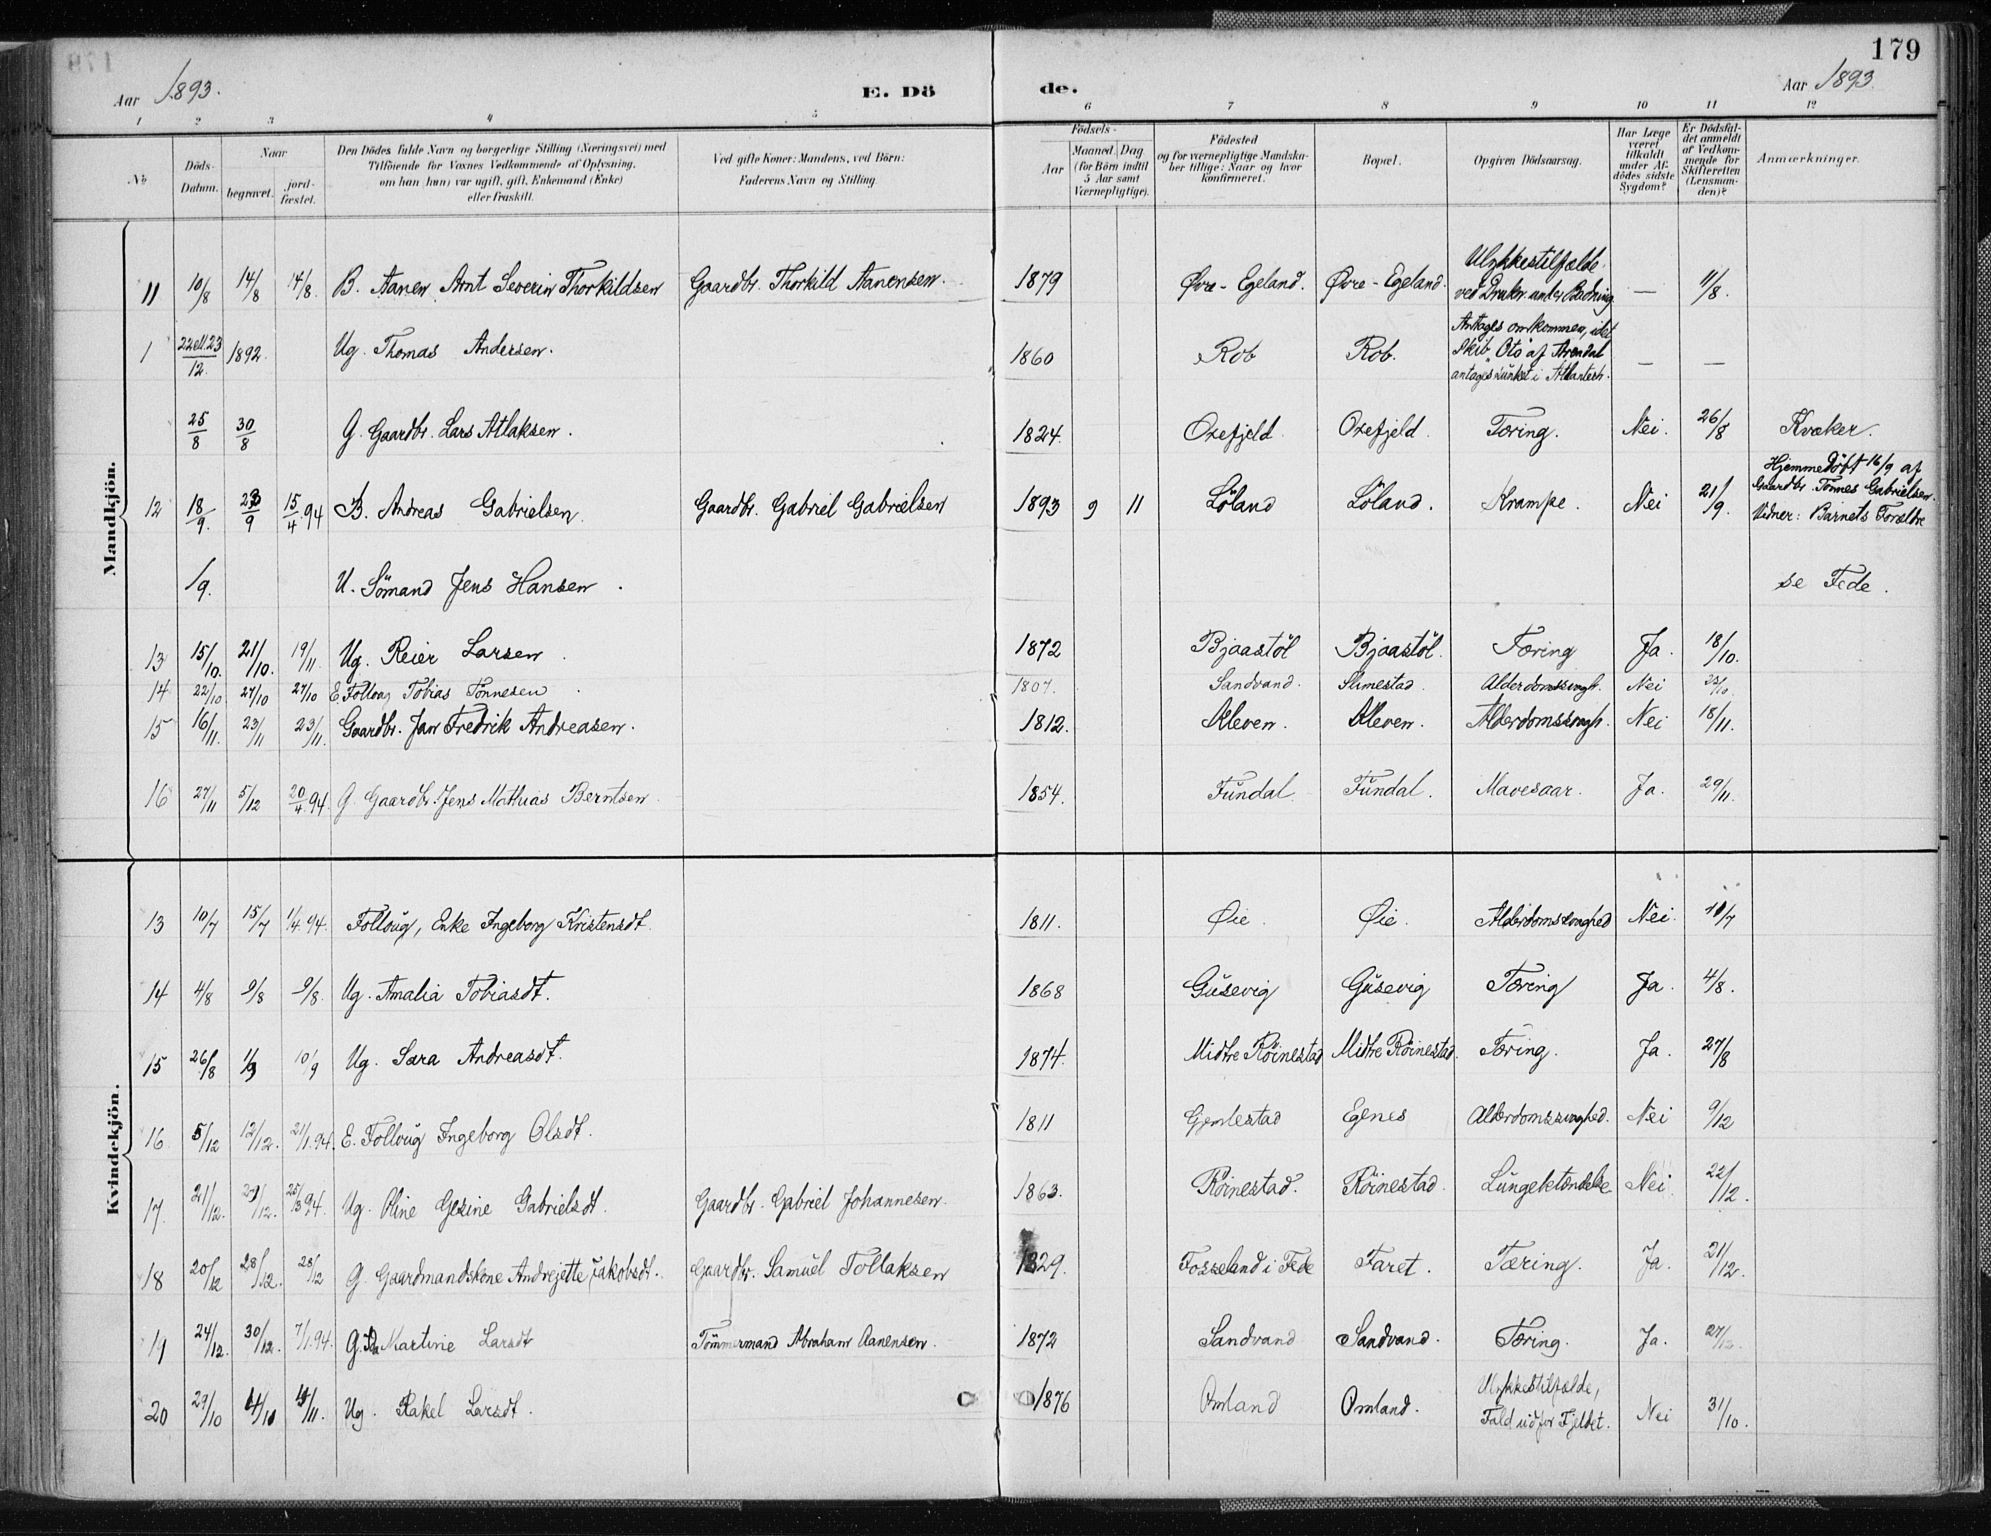 179
Aar 1893. E. Dö de. Aar 1893.
1 2 3 4 5 6 7 8 9 10 11 12
No
Döds-Datum.
Naar
begravet.
jord-fæstet.
Den Dödes fulde Navn og borgerlige Stilling (Næringsvei) med
Tilföiende for Voxnes Vedkommende af Oplysning,
om han (hun) var ugift, gift, Enkemand (Enke)
eller fraskilt.
Ved gifte Koner: Mandens, ved Börn:
Faderens Navn og Stilling.
Födsels-
Aar
Maaned. Dag
(for Börn indtil
5 Aar samt
Værnepligtige).
Födested
og for værnepligtige Mandska-
ber tillige: Naar og hvor
konfirmeret.
Bopæl.
Opgiven Dödsaarsag.
Har Læge
været
tilkaldt
under Af-
dödes sidste
Sygdom?
Er Dödsfal-
det anmeldt
af Vedkom-
mende for
Skifteretten
(Lensman-
den)?
Anmærkninger.
Mandkjön.
11 10/8 14/8 14/8. B. Aanen Arnt Severin Thorkildsen Gaardbr. Thorkild Aanensen. 1879 Øvre-Egeland. Øvre-Egeland. Ulykkestilfælde ved Drukn. under Badning — 11/8.
1 22 ell. 23/12. 1892. Ug. Thomas Andersen. 1860 Rob Rob. Antages omkommen, idet Skib "Oto" af Arendal antages sunket i Atlanterh. — —
25/8 30/8 G. Gaardbr. Lars Atlaksen. 1824. Oxefjeld Oxefjeld. Tæring. Nei. 26/8 Kvæker.
12 18/9. 23/9 15/4 94 B. Andreas Gabrielsen Gaardbr. Gabriel Gabrielsen 1893 9 11 Löland Löland. Krampe. Nei 21/9. Hjemmedöbt 16/9 af Gaardbr. Tönnes Gabrielsen. Vidner: Barnets Forældre
/9. U. Sömand Jens Hansen. se Fede.
13 15/10. 21/10. 19/11. Ug. Reier Larsen. 1872 Bjaastöl Bjaastöl. Tæring Ja. 18/10.
14 22/10 27/10 27/10 E. Tobias Tönnesen 1807. Sandvand. Slimestad. Alderdomssvagh. Nei 23/10.
15 16/11. 23/11 23/11. Gaardbr. Jan Fredrik Andreasen. 1812. Kleven. Kleven. Alderdomssvagh. Nei 18/11.
16 27/11 5/12 20/4 94. G. Gaardbr. Jens Mathias Berntsen. 1854. Fundal. Fundal. Mavesaar. Ja. 29/11.
Kvindekjön.
13 10/7 15/7 1/4 94. Follaug, Enke Ingeborg Kristensdt. 1811. Øie. Øie. Alderdomssvaghed Nei. 11/7
14 4/8 9/8 9/8. Ug. Amalia Tobiasdt. 1868 Gusevig Gusevig Tæring Ja. 4/8.
15 26/8 1/9 10/9 Ug. Sara Andreasdt. 1874. Midtre Röinestad Midtre Röinestad. Tæring. Ja. 27/8
16 5/12 12/12. 21/1. 94. E. Follaug Ingeborg Olsdt. 1811 Gjemlestad Egenes Alderdomssvaghed. Nei 9/12
17 21/12. /12. 25/3 94. Ug. Oline Gesine Gabrielsdt. Gaardbr. Gabriel Johannesen. 1863. Röinestad. Röinestad. Lungebetændelse Nei. 22/12.
18 20/12 28/12. 28/12 G. Gaardmandskone Andrejette Jakobsdt. Gaardbr. Samuel Tollaksen 1829. Fosseland i Fede Faret. Tæring. Ja. 21/12.
19 24/12. 30/12. 7/1. 94. G. Martine Larsdt Tömmermand Abraham Aanensen. 1872 Sandvand Sandvand. Tæring. Ja. 27/12.
20 29/10 4/11 4/11. Ug. Rakel Larsdt. 1876 Omland Omland. Ulykkestilfælde, Fald udfor Fjeldet. Nei 31/10.